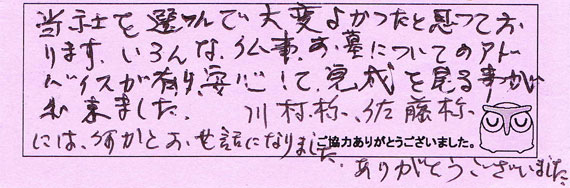 当示士を選んで大変よかったと思っており
ります、いろんな、仏事、お墓についてのアド
バイスが有り、安心して、完成を見る事が
出来ました。 川村様、佐藤様
には、何かとお世話になりました。
ご協力ありがとうございました。
ありがとうございました